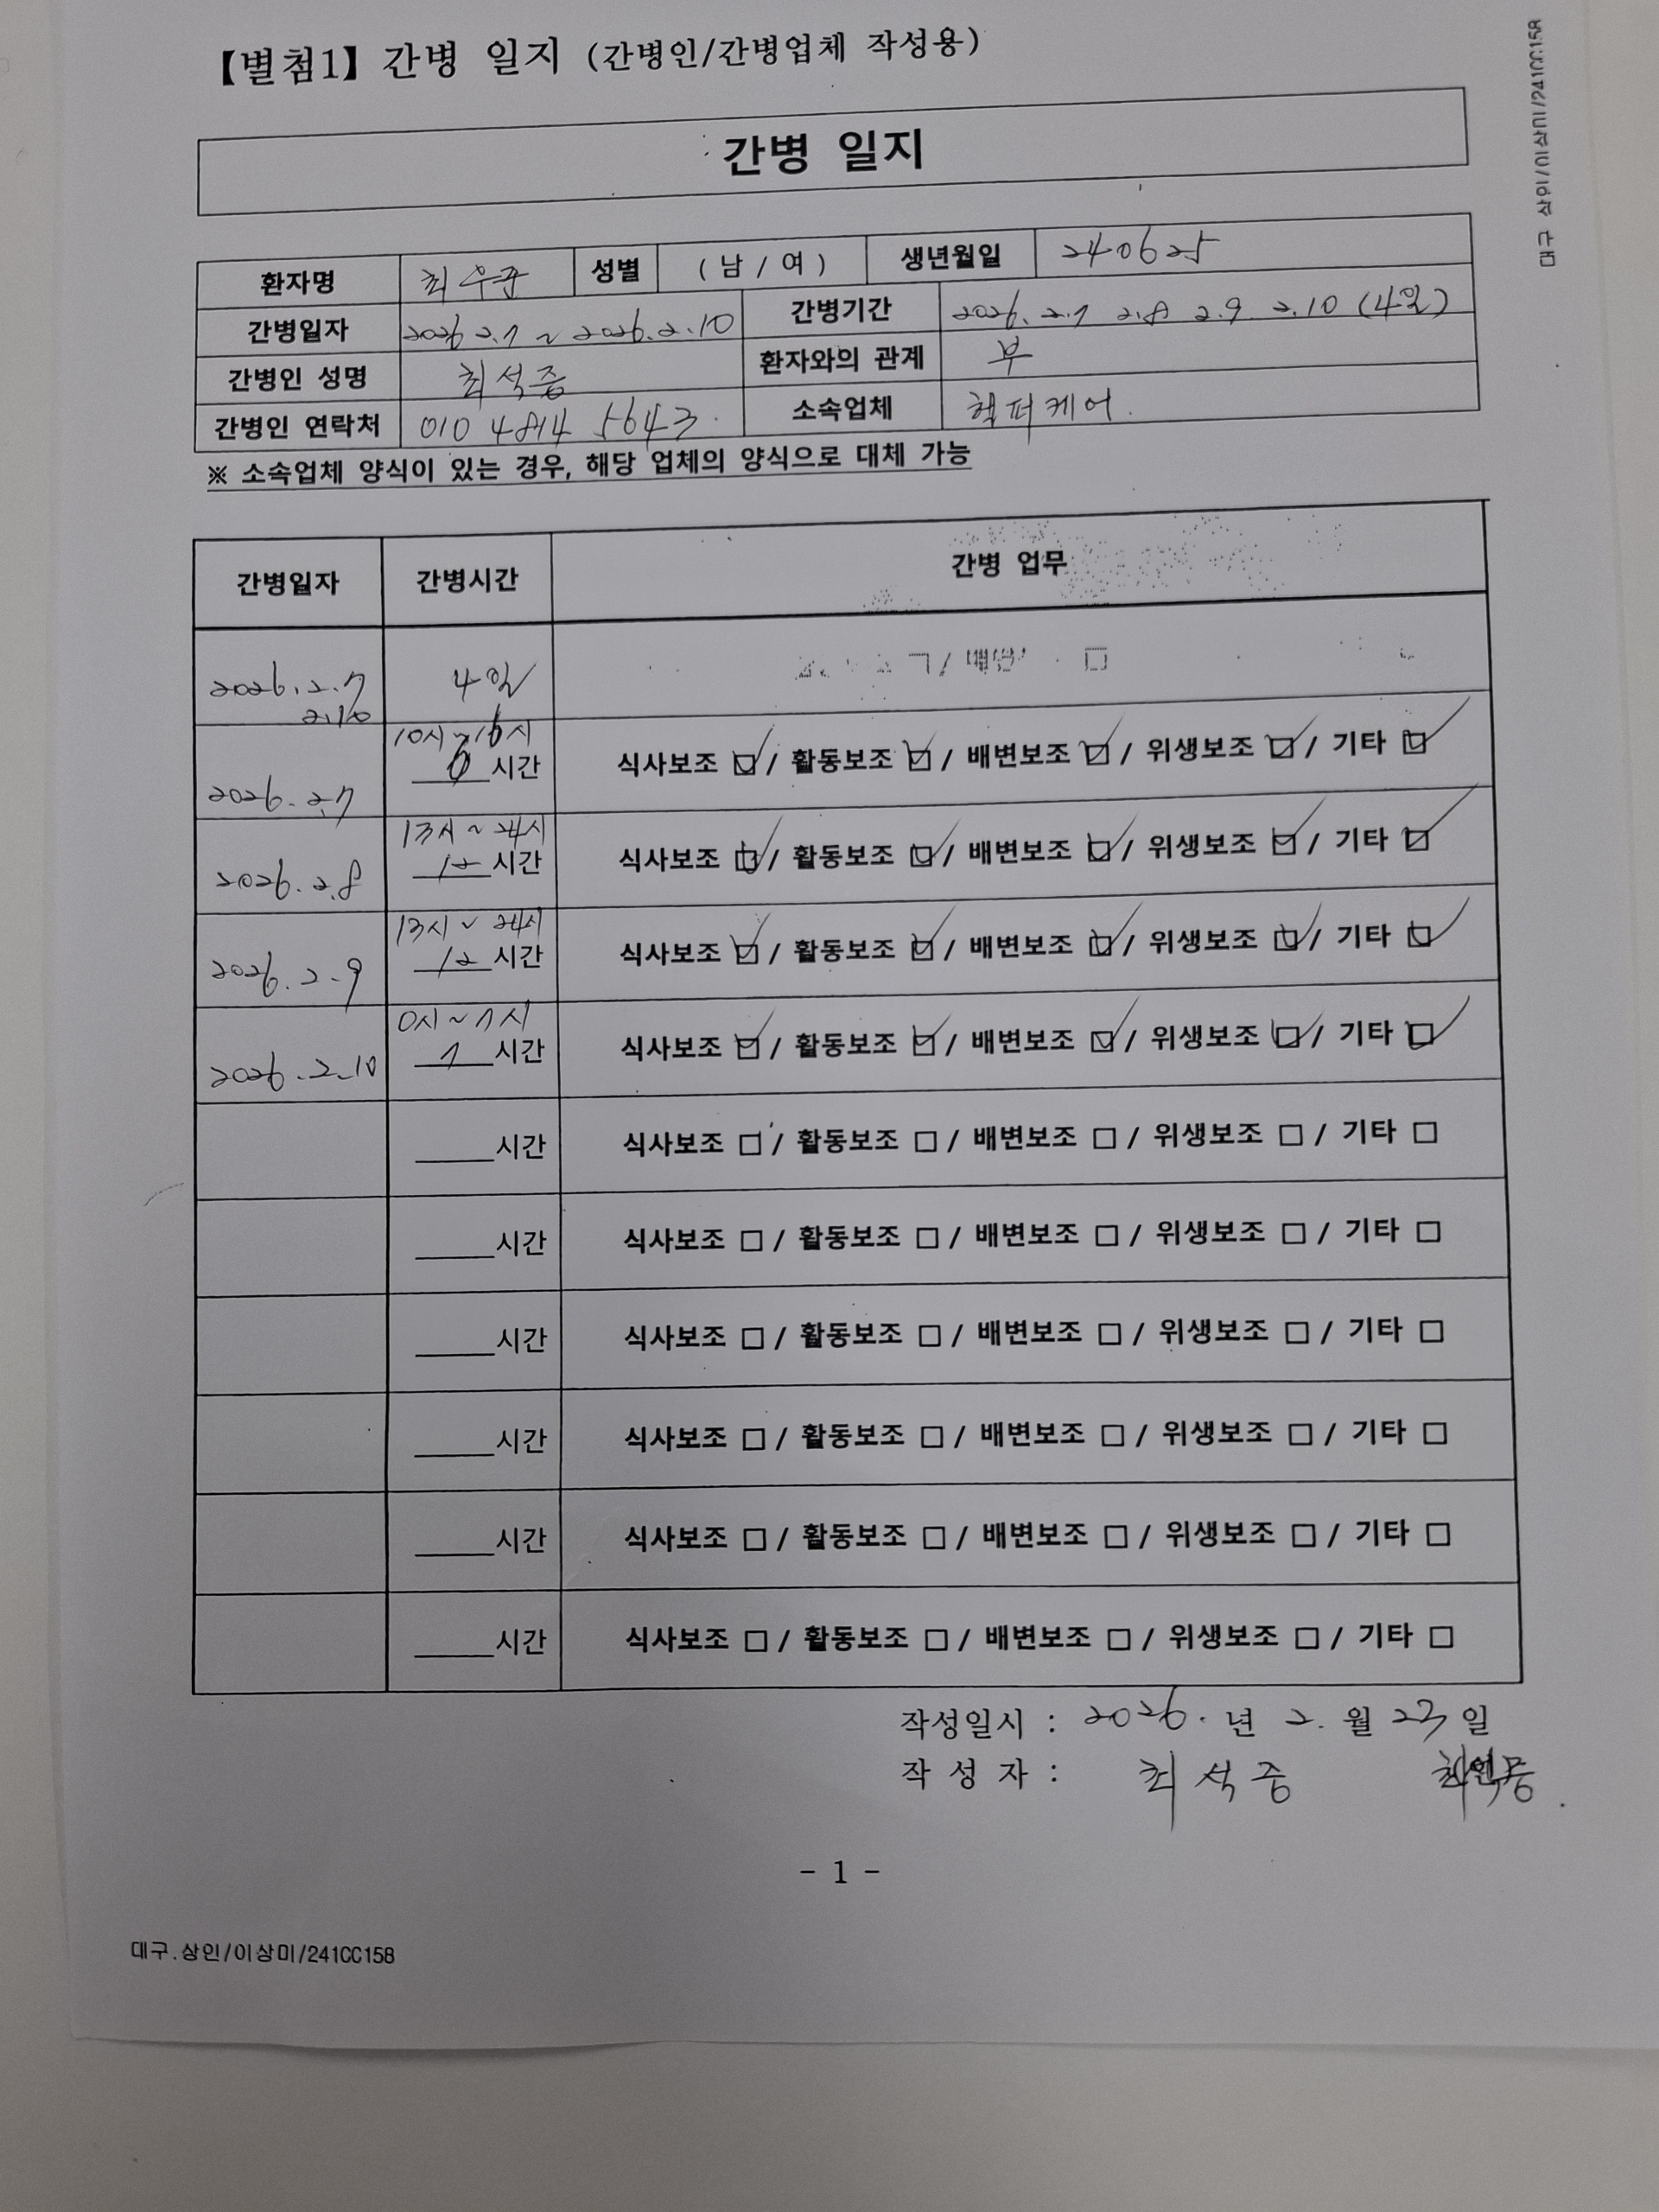 【별첨1】 간병 일지 (간병인/간병업체 작성용)
대구.상인/이상미/241CC158
간병 일지
환자명 최우준 성별 ( 남 / 여 ) 생년월일 240625
간병일자 2026 2.7 ~ 2026.2.10 간병기간 2026. 2.7 2.8 2.9 2.10 (4일)
간병인 성명 최석중 환자와의 관계 부
간병인 연락처 010 4814 5643 소속업체 헬퍼케어.
※ 소속업체 양식이 있는 경우, 해당 업체의 양식으로 대체 가능
간병일자 간병시간 간병 업무
2026.2.7 4일
2.10
10시~16시
2026.2.7 6 시간 식사보조 ☑ / 활동보조 ☑ / 배변보조 ☑ / 위생보조 ☑ / 기타 ☑
13시 ~ 24시
2026.2.8 12 시간 식사보조 ☑ / 활동보조 ☑ / 배변보조 ☑ / 위생보조 ☑ / 기타 ☑
13시 ~ 24시
2026.2.9 12 시간 식사보조 ☑ / 활동보조 ☑ / 배변보조 ☑ / 위생보조 ☑ / 기타 ☑
0시~1시
2026.2.10 1 시간 식사보조 ☑ / 활동보조 ☑ / 배변보조 ☑ / 위생보조 ☑ / 기타 ☑
____시간 식사보조 □ / 활동보조 □ / 배변보조 □ / 위생보조 □ / 기타 □
____시간 식사보조 □ / 활동보조 □ / 배변보조 □ / 위생보조 □ / 기타 □
____시간 식사보조 □ / 활동보조 □ / 배변보조 □ / 위생보조 □ / 기타 □
____시간 식사보조 □ / 활동보조 □ / 배변보조 □ / 위생보조 □ / 기타 □
____시간 식사보조 □ / 활동보조 □ / 배변보조 □ / 위생보조 □ / 기타 □
____시간 식사보조 □ / 활동보조 □ / 배변보조 □ / 위생보조 □ / 기타 □
작성일시 : 2026. 년 2. 월 23 일
작 성 자 : 최석중
- 1 -
대구.상인/이상미/241CC158